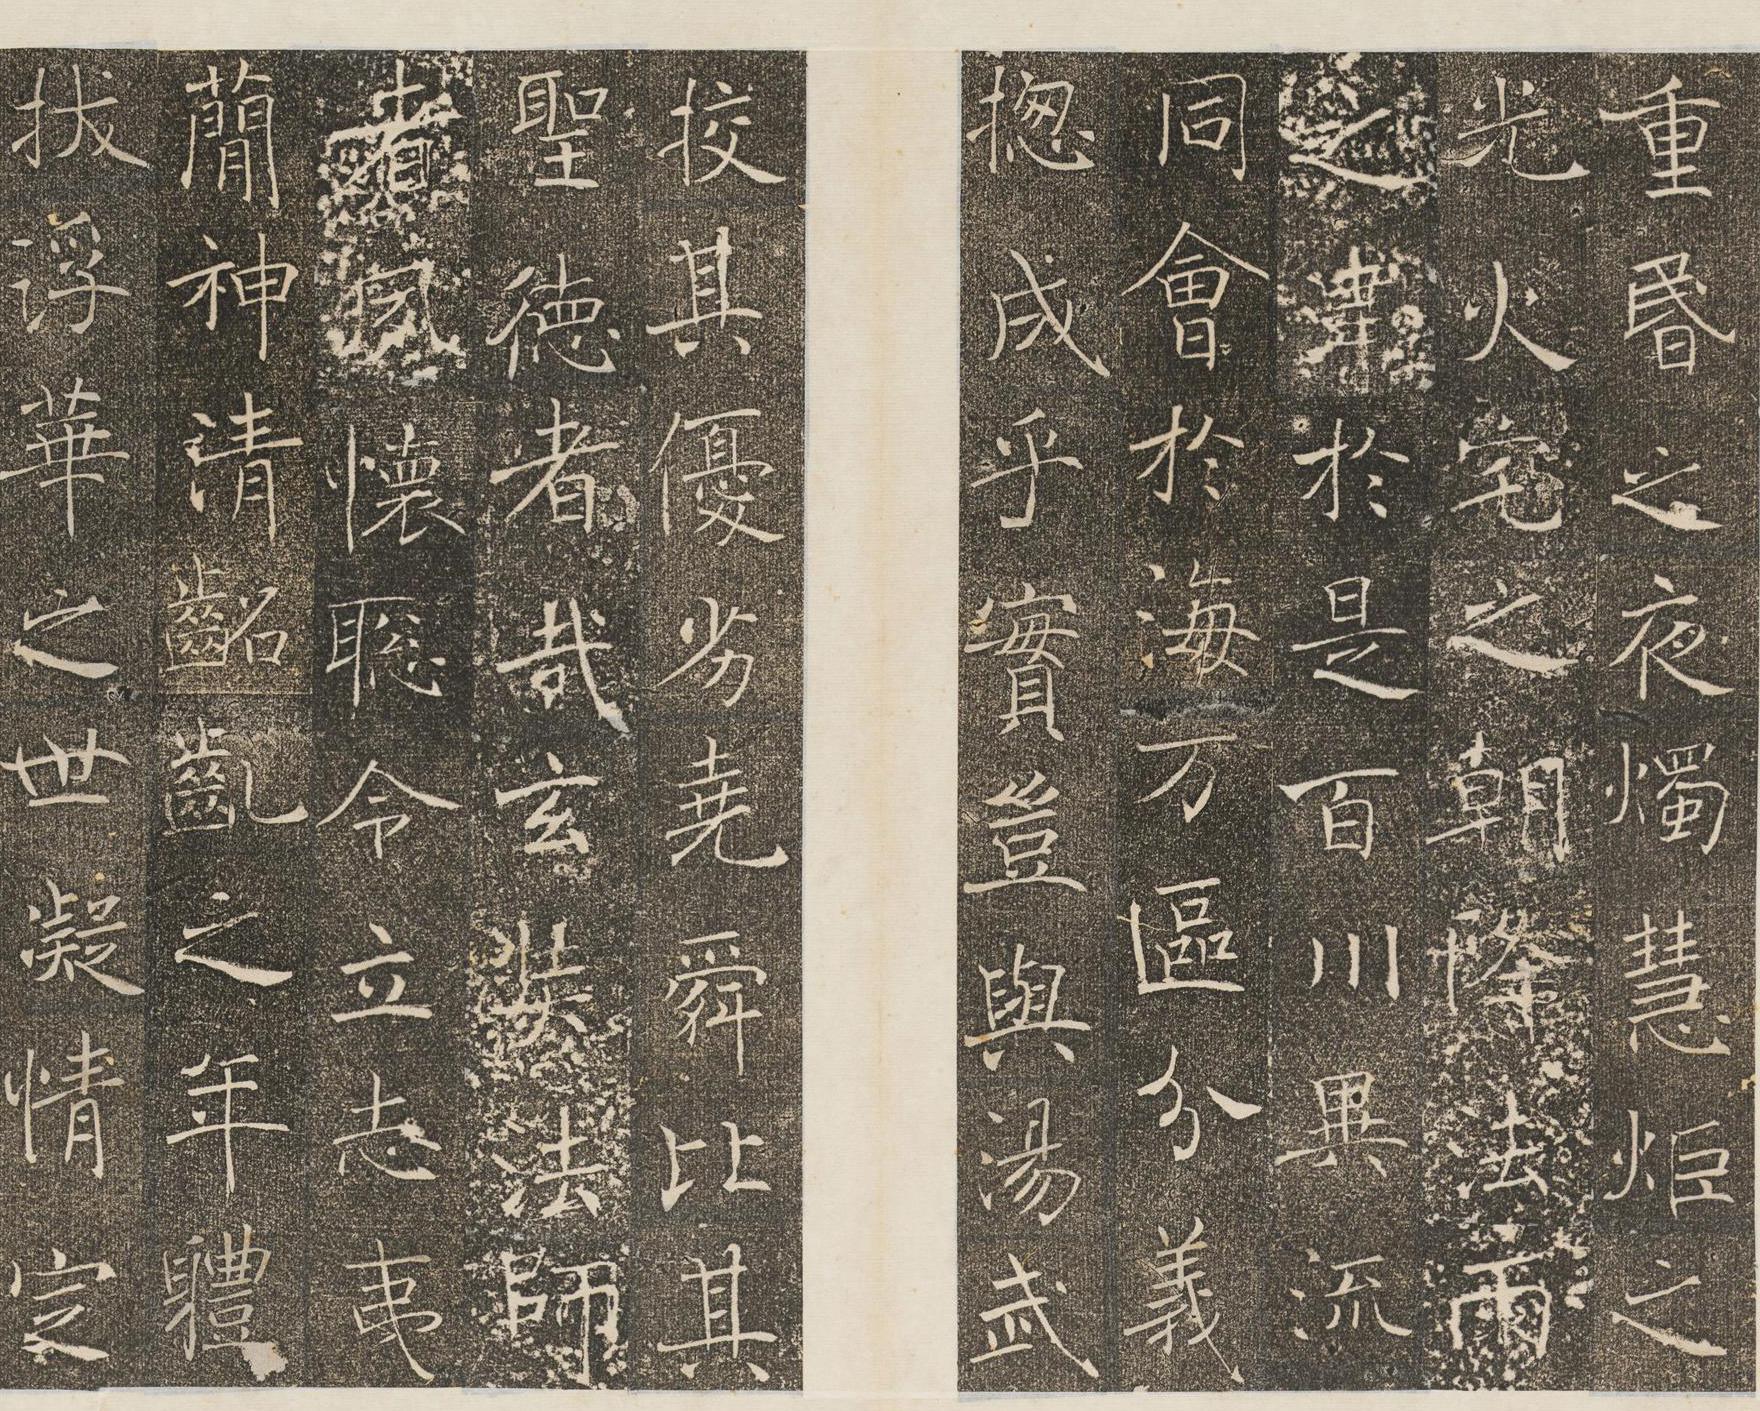 重昬之夜燭慧炬之
光火宅之朝降法雨
之澤於是百川異流
同會於海万區分義
揔成乎實豈與湯武
挍其優劣堯舜比其
聖徳者哉玄奘法師
者夙懷聦令立志夷
蕑神清齠齔之年軆
拔浮華之世凝情定